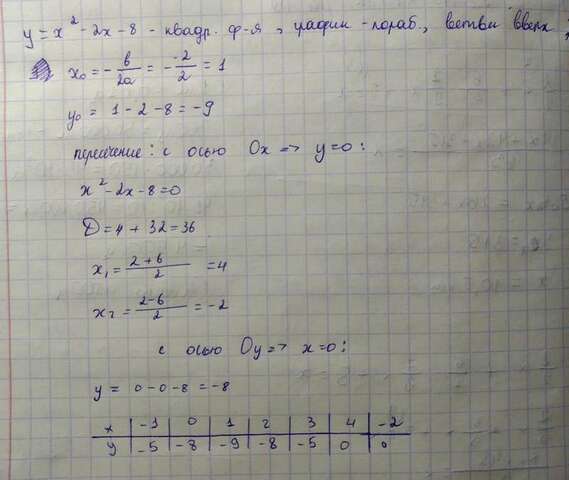 y = x² - 2x - 8 - квадр. ф-я, график - параб., ветви вверх,
x₀ = - b/2a = - -2/2 = 1
y₀ = 1 - 2 - 8 = -9
пересечение: с осью Ox => y=0:
x² - 2x - 8 = 0
D = 4 + 32 = 36
x₁ = 2+6/2 = 4
x₂ = 2-6/2 = -2
с осью Oy => x=0:
y = 0 - 0 - 8 = -8
x | -1 | 0 | 1 | 2 | 3 | 4 | -2
y | -5 | -8 | -9 | -8 | -5 | 0 | 0